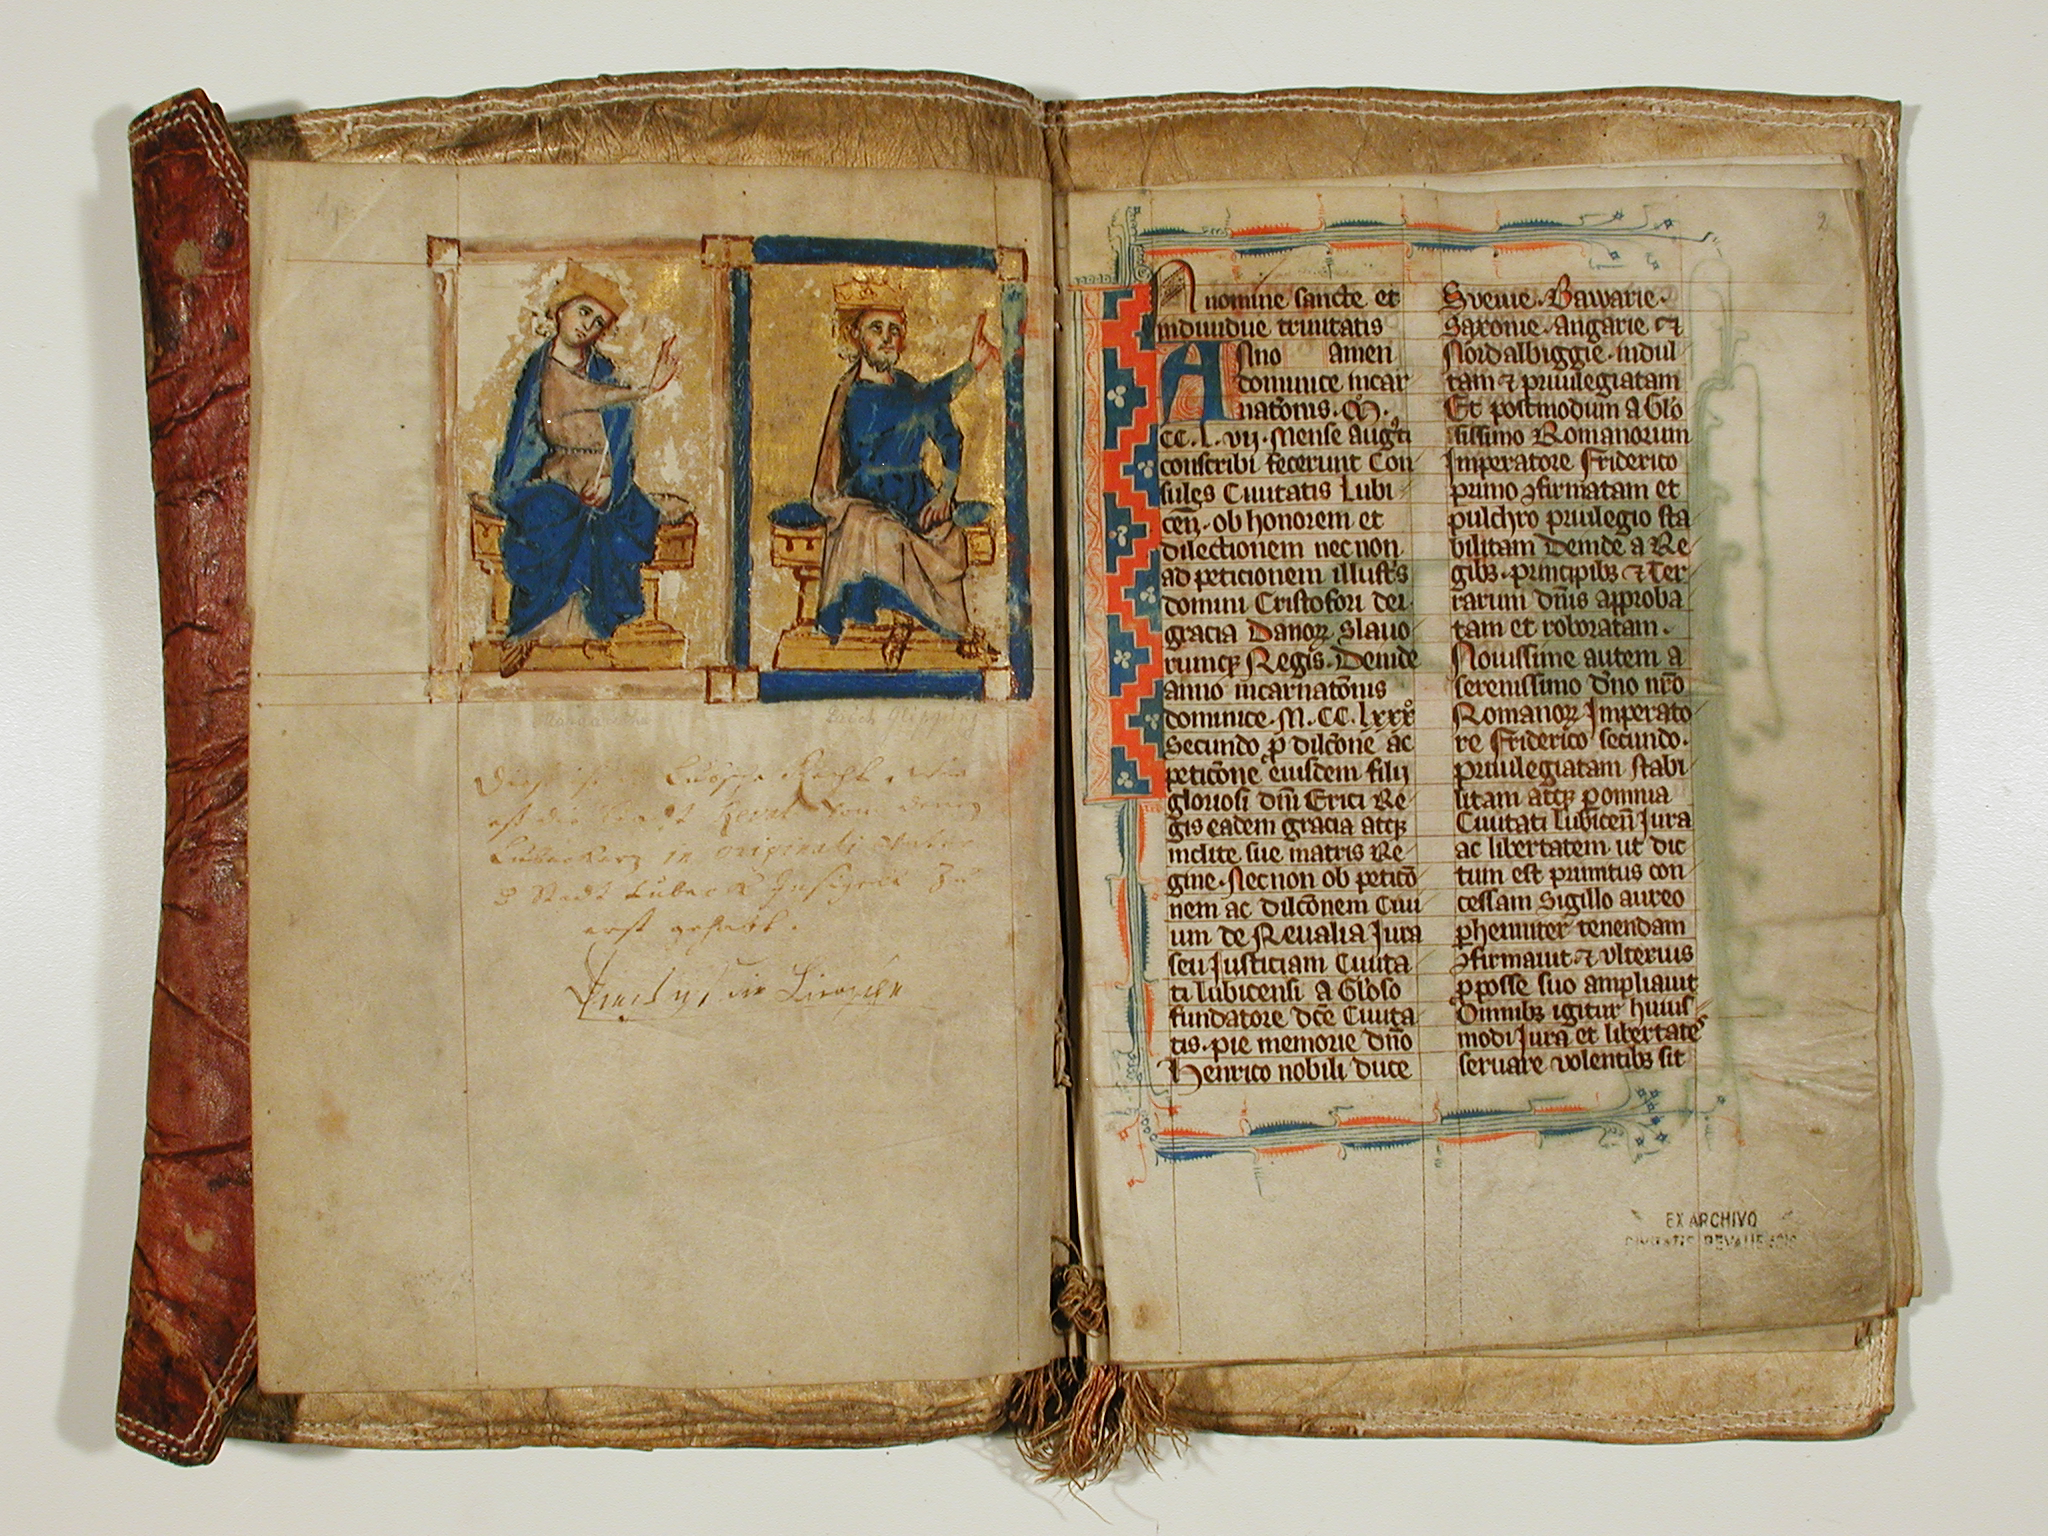 Margaretha
Erich Glipping
Lubsche Recht
in originali
Stadt Lubeck Insigell Zu
erst gehabt.
2
In nomine sancte et
indiuidue trinitatis
Anno amen
dominice incar
natōnis . M .
CC . L . vij . Mense augˢti
conscribi fecerunt Con
sules Ciuitatis Lubi
ceñ . ob honorem et
dilectionem necnon
ad peticionem illustˢs
domini Cristofori dei
gracia Danoꝝ Slauo
rumqꝫ Regis . Deinde
anno incarnatōnis
dominice . M . CC . lxxxº
Secundo ꝓ dilcōne ac
peticōne eiusdem filij
gloriosi dn̄i Erici Re
gis eadem gracia atqꝫ
inclite sue matris Re
gine . Necnon ob peticō
nem ac dilcōnem Ciui
um de Reualia Jura
seu Justiciam Ciuita
ti lubicensi a Gloso
fundatore dcē Ciuita
tis . pie memorie dn̄o
Henrico nobili duce
Sveuie . Bawarie .
Saxonie . Angarie ⁊
Nordalbiggie . indul
tam ⁊ priuilegiatam
Et postmodum a Glo
sissimo Romanorum
Imperatore Friderico
primo ꝯfirmatam et
pulchro priuilegio sta
bilitam Deinde a Re
gibꝫ . principibꝫ ⁊ Ter
rarum dn̄is approba
tam et roboratam .
Nouissime autem a
serenissimo dn̄o nr̄o
Romanoꝝ Imperato
re Friderico secundo .
priuilegiatam stabi
litam atqꝫ ꝑ omnia
Ciuitati lubiceñ Jura
ac libertatem ut dic
tum est primitus con
cessam Sigillo aureo
ꝑhenniter tenendam
ꝯfirmauit ⁊ vlterius
ꝓ posse suo ampliauit
Omnibꝫ igitur huius
modi Jura et libertates
seruare volentibꝫ sit
EX ARCHIVO
CIVITATIS REVALIENSIS